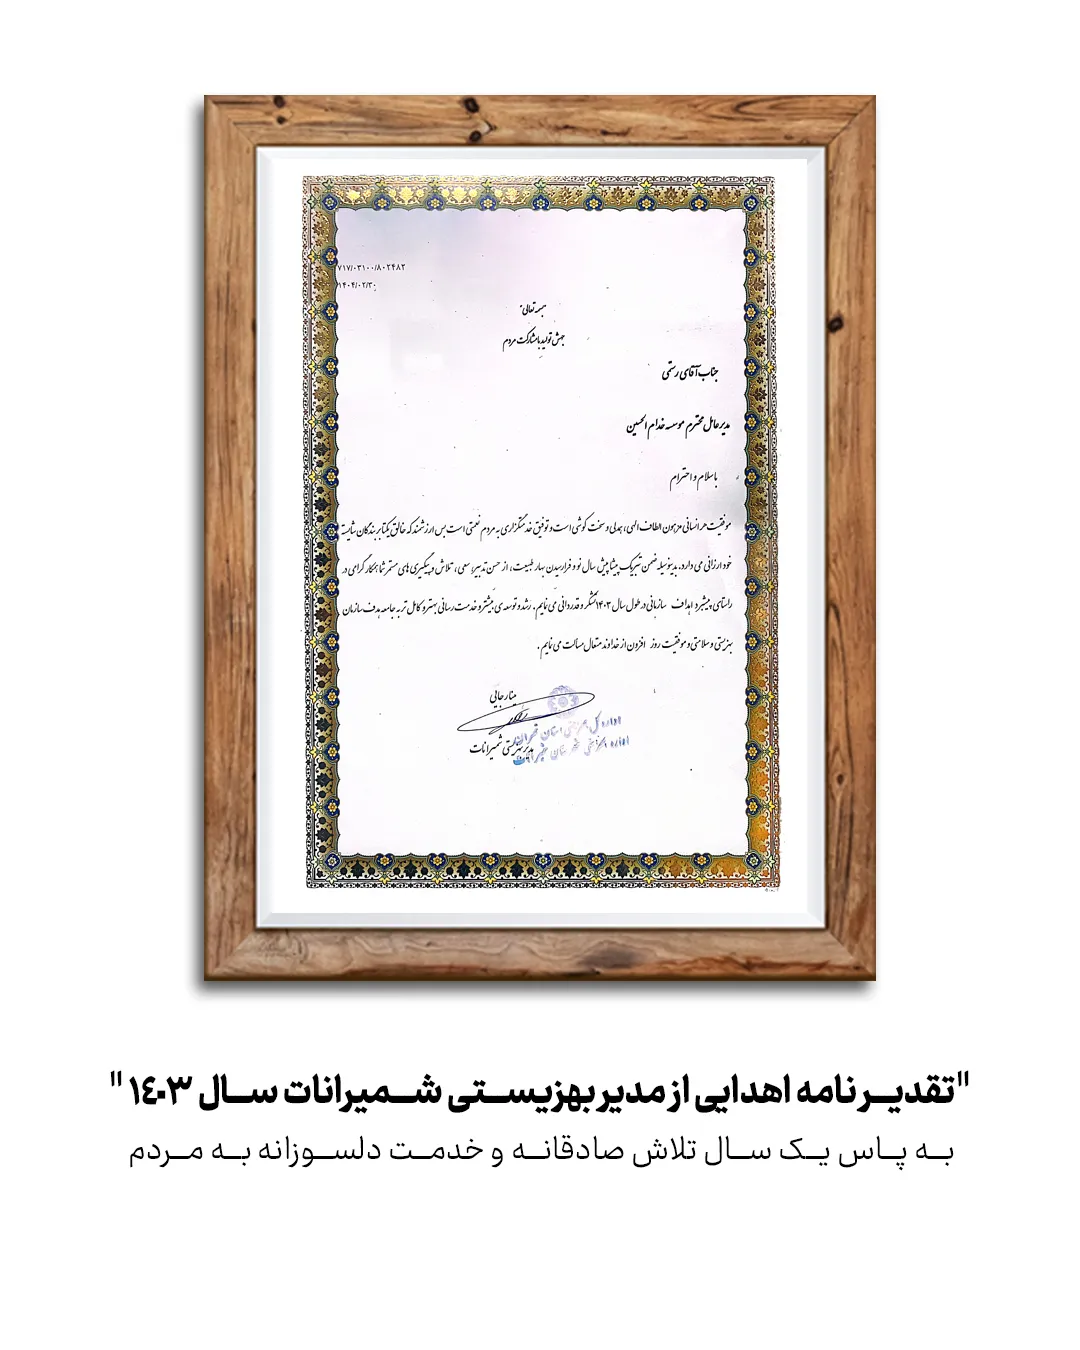 ۷۱۷/۰۳۱۰۰/۸۰۲۴۸۲
۱۴۰۴/۰۲/۳۰
بسمه تعالی
جهش تولید با مشارکت مردم
جناب آقای رستمی
مدیرعامل محترم موسسه خدام الحسین
با سلام و احترام
موفقیت هر انسانی مرهون الطاف الهی، همدلی و سخت کوشی است و توفیق خدمتگزاری به مردم نعمتی است بس ارزشمند که خالق یکتا بر بندگان شایسته
خود ارزانی می دارد. بدینوسیله ضمن تبریک پیشاپیش سال نو و فرارسیدن بهار طبیعت، از حسن تدبیر، سعی، تلاش و پیگیری های مستمر شما همکار گرامی در
راستای پیشبرد اهداف سازمانی در طول سال ۱۴۰۳ تشکر و قدردانی می نمایم. رشد و توسعه ی بیشتر و خدمت رسانی بهتر و کامل تر به جامعه هدف سازمان
بهزیستی و سلامتی و موفقیت روز افزون از خداوند متعال مسالت می نمایم.
مینا رجایی
اداره کل بهزیستی استان تهران
اداره بهزیستی شهرستان شمیرانات
مدیر بهزیستی شمیرانات
"تقدیر نامه اهدایی از مدیر بهزیستی شمیرانات سال ۱۴۰۳"
به پاس یک سال تلاش صادقانه و خدمت دلسوزانه به مردم